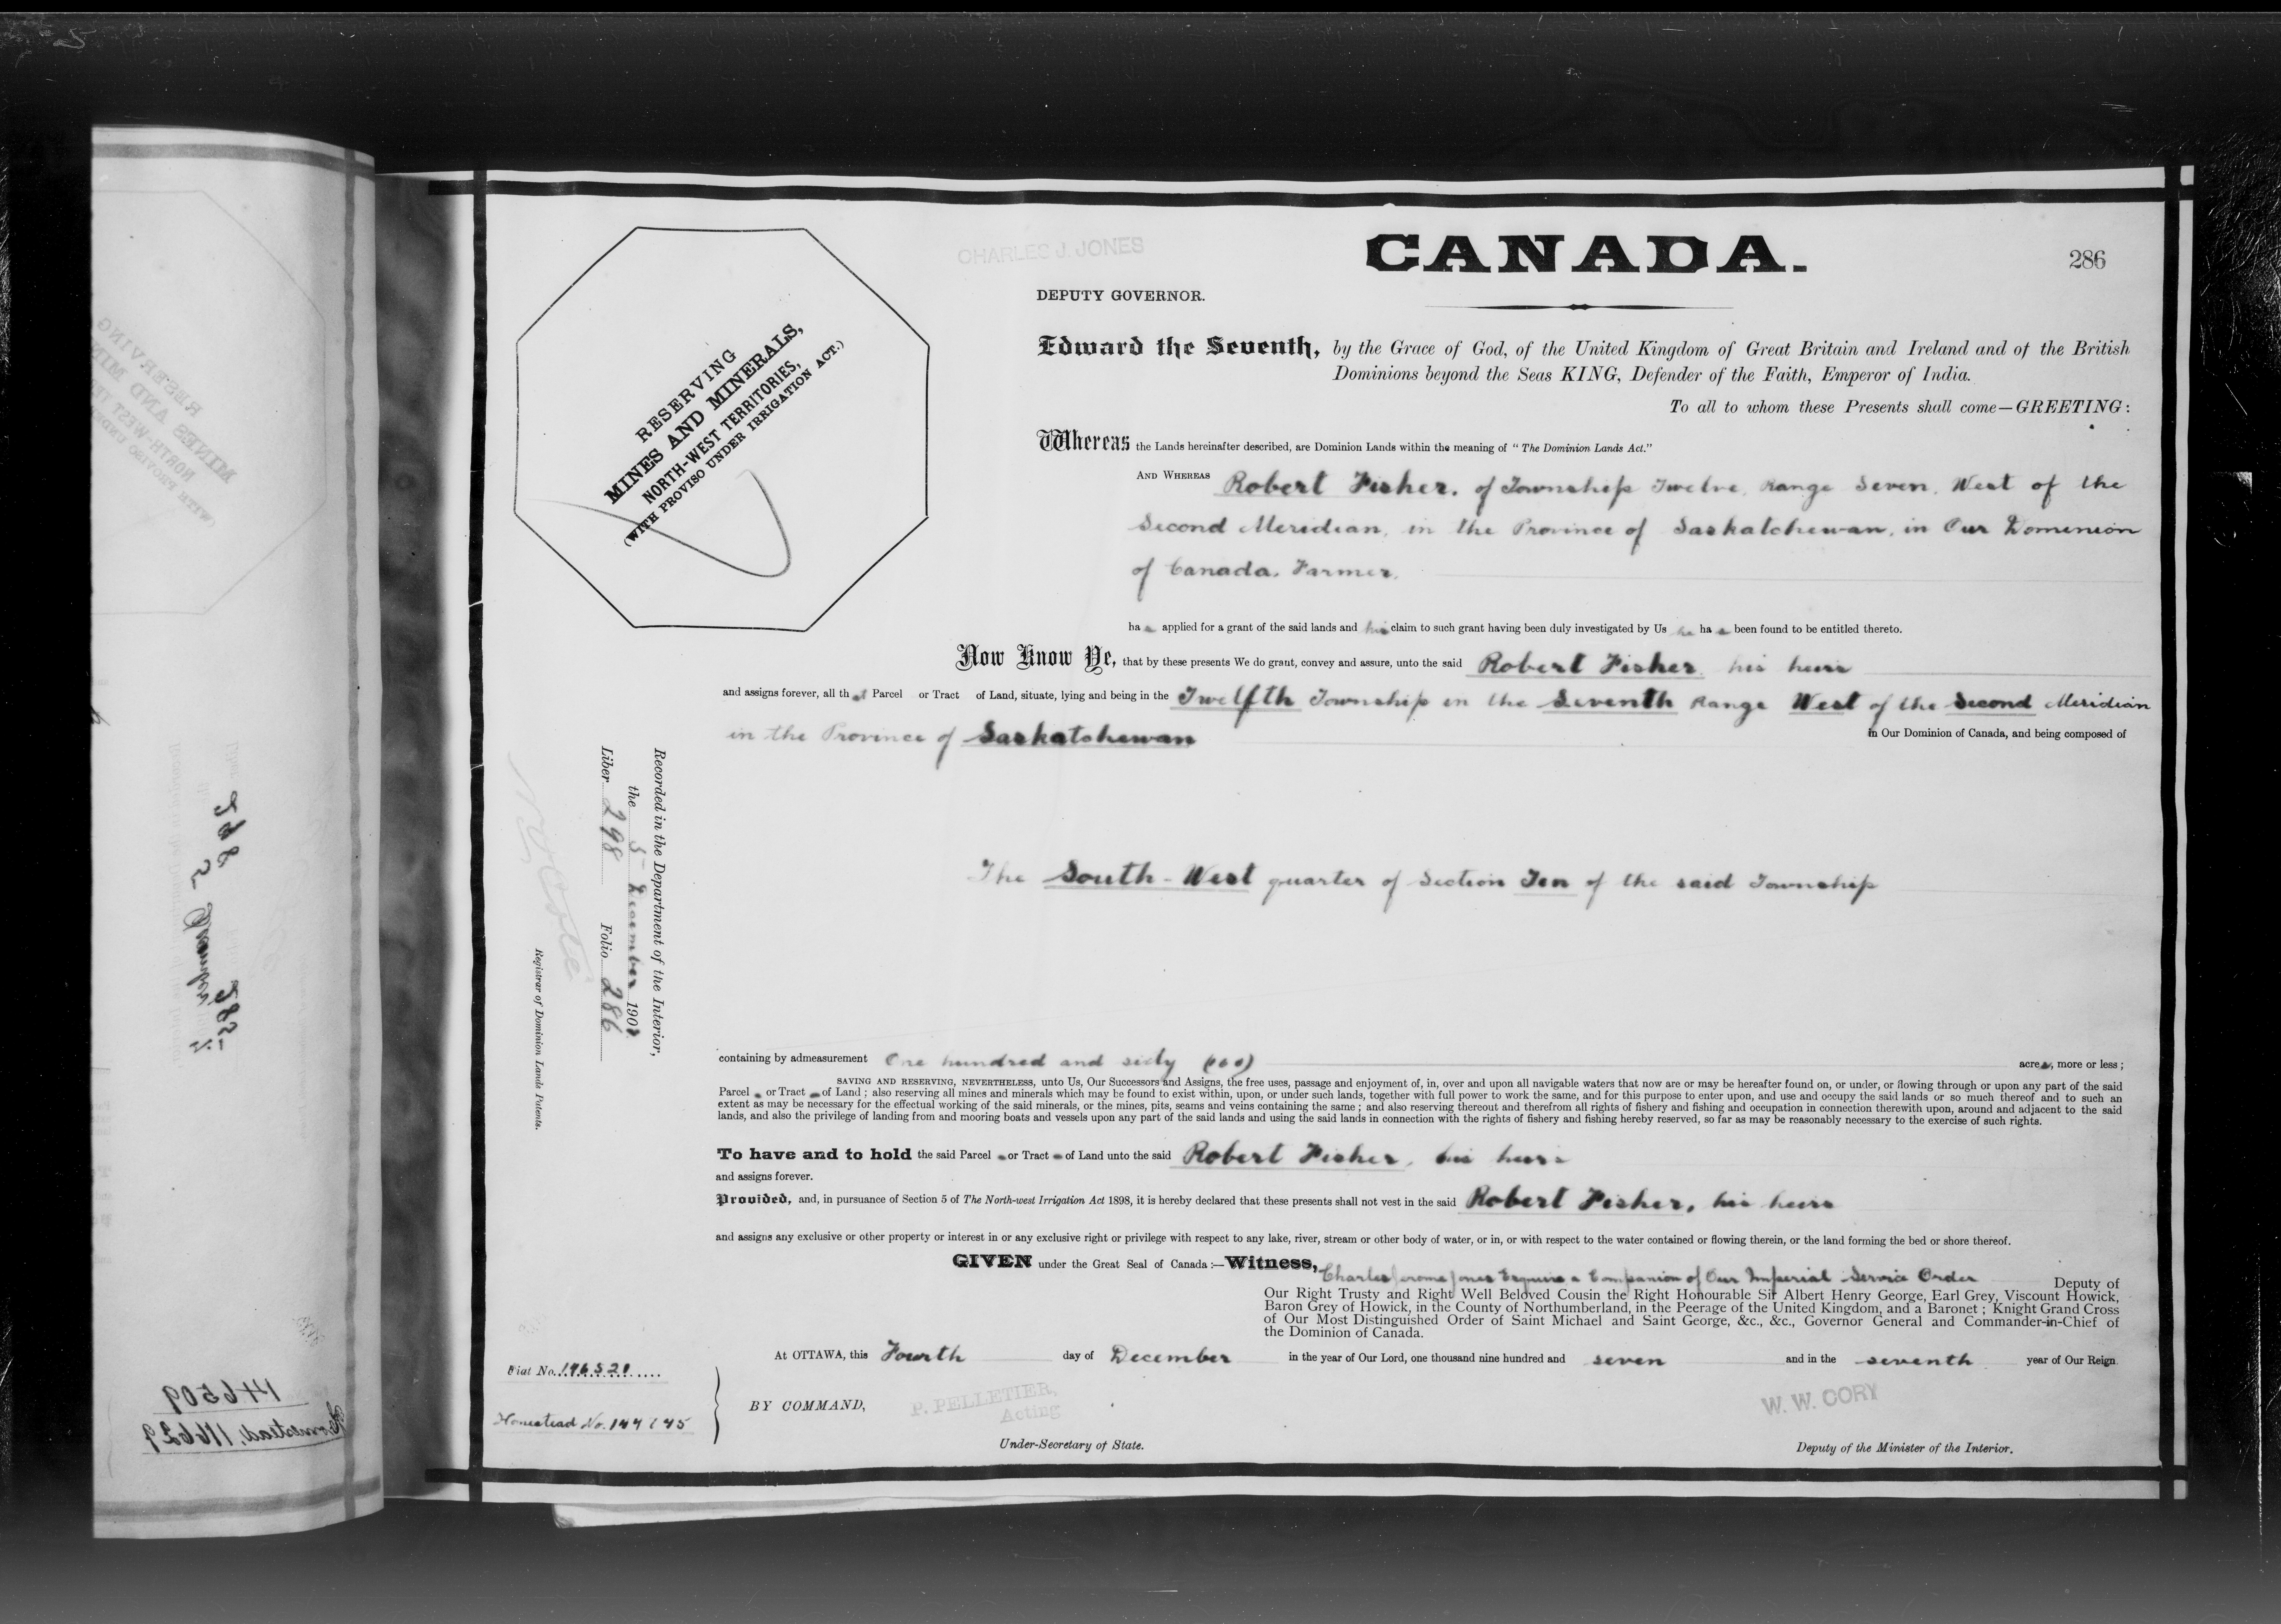 CHARLES J. JONES
CANADA.
286
DEPUTY GOVERNOR.
RESERVING
MINES AND MINERALS,
NORTH-WEST TERRITORIES,
(WITH PROVISO UNDER IRRIGATION ACT.)
Edward the Seventh, by the Grace of God, of the United Kingdom of Great Britain and Ireland and of the British
Dominions beyond the Seas KING, Defender of the Faith, Emperor of India.
To all to whom these Presents shall come—GREETING:
Whereas the Lands hereinafter described, are Dominion Lands within the meaning of "The Dominion Lands Act."
AND WHEREAS Robert Fisher, of Township Twelve, Range Seven, West of the
Second Meridian, in the Province of Saskatchewan, in Our Dominion
of Canada, Farmer,
has applied for a grant of the said lands and his claim to such grant having been duly investigated by Us he has been found to be entitled thereto.
Now Know Ye, that by these presents We do grant, convey and assure, unto the said Robert Fisher, his heirs
and assigns forever, all that Parcel or Tract of Land, situate, lying and being in the Twelfth Township in the Seventh Range West of the Second Meridian
in the Province of Saskatchewan in Our Dominion of Canada, and being composed of
The South-West quarter of Section Ten of the said Township
Recorded in the Department of the Interior,
the 5 December 190
Liber 298 Folio 286
Registrar of Dominion Lands Patents.
containing by admeasurement One hundred and sixty (160) acres, more or less;
SAVING AND RESERVING, NEVERTHELESS, unto Us, Our Successors and Assigns, the free uses, passage and enjoyment of, in, over and upon all navigable waters that now are or may be hereafter found on, or under, or flowing through or upon any part of the said
Parcel or Tract of Land; also reserving all mines and minerals which may be found to exist within, upon, or under such lands, together with full power to work the same, and for this purpose to enter upon, and use and occupy the said lands or so much thereof and to such an
extent as may be necessary for the effectual working of the said minerals, or the mines, pits, seams and veins containing the same; and also reserving thereout and therefrom all rights of fishery and fishing and occupation in connection therewith upon, around and adjacent to the said
lands, and also the privilege of landing from and mooring boats and vessels upon any part of the said lands and using the said lands in connection with the rights of fishery and fishing hereby reserved, so far as may be reasonably necessary to the exercise of such rights.
To have and to hold the said Parcel or Tract of Land unto the said Robert Fisher, his heirs
and assigns forever.
Provided, and, in pursuance of Section 5 of The North-west Irrigation Act 1898, it is hereby declared that these presents shall not vest in the said Robert Fisher, his heirs
and assigns any exclusive or other property or interest in or any exclusive right or privilege with respect to any lake, river, stream or other body of water, or in, or with respect to the water contained or flowing therein, or the land forming the bed or shore thereof.
GIVEN under the Great Seal of Canada:—Witness, Charles Jerome Jones Esquire a Companion of Our Imperial Service Order Deputy of
Our Right Trusty and Right Well Beloved Cousin the Right Honourable Sir Albert Henry George, Earl Grey, Viscount Howick,
Baron Grey of Howick, in the County of Northumberland, in the Peerage of the United Kingdom, and a Baronet; Knight Grand Cross
of Our Most Distinguished Order of Saint Michael and Saint George, &c., &c., Governor General and Commander-in-Chief of
the Dominion of Canada.
At OTTAWA, this Fourth day of December in the year of Our Lord, one thousand nine hundred and seven and in the seventh year of Our Reign.
Fiat No.
Homestead No.
BY COMMAND,
P. PELLETIER,
Acting
Under-Secretary of State.
W. W. CORY
Deputy of the Minister of the Interior.
146509
Homestead, 116629